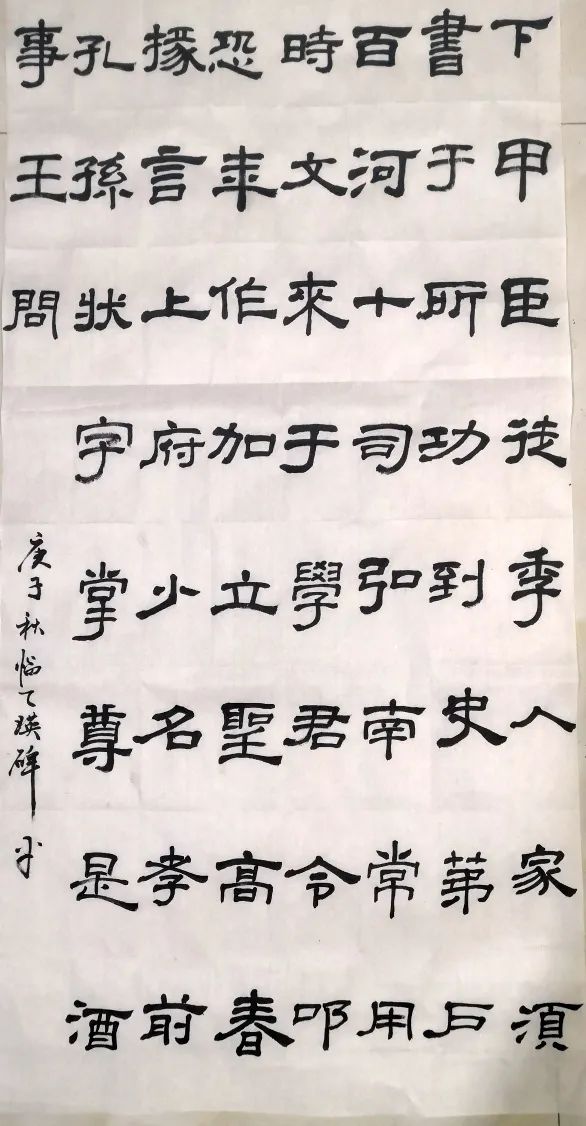 下甲臣徒季人家須
書于所功到史苐戶
百河十司弘南常用
時文來于學君令叩
恐年作加立聖高春
掾言上府少名孝前
孔孫狀字掌尊是酒
事王問
庚子秋临乙瑛碑